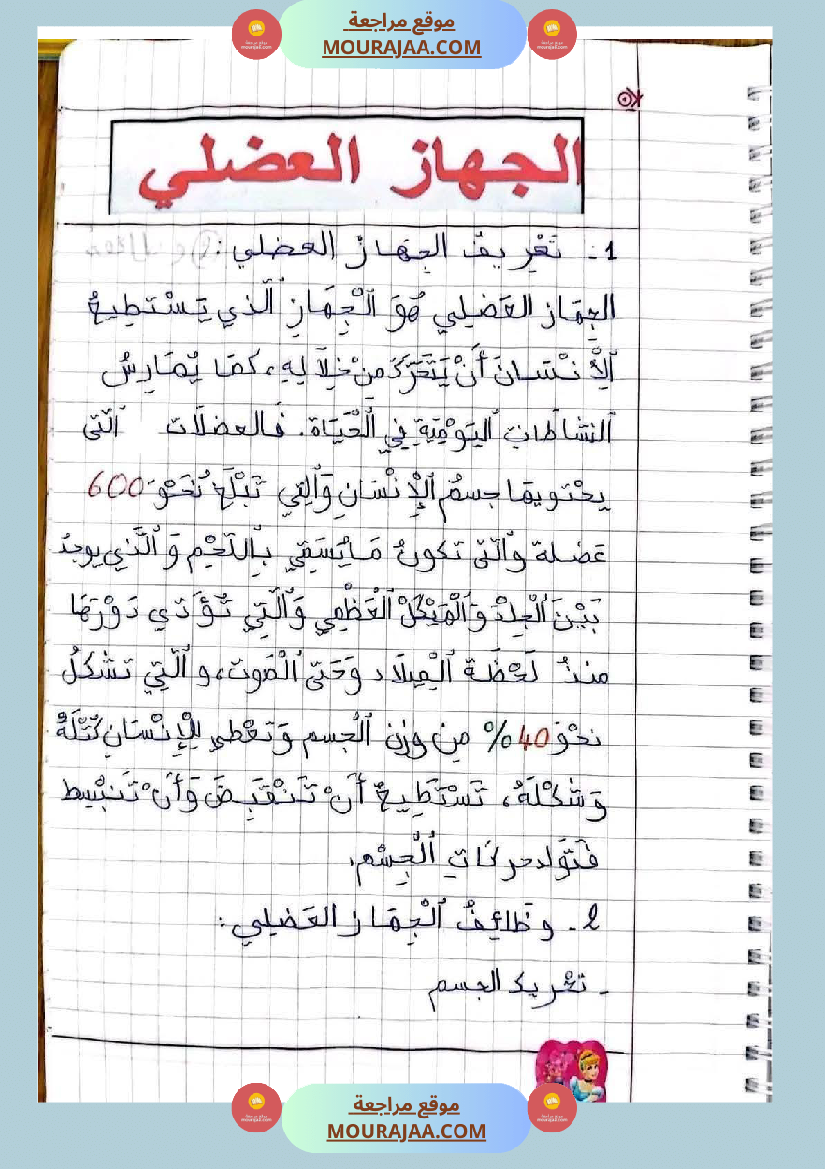 موقع مراجعة
MOURAJAA.COM
الجهاز العضلي
1 - تَعْرِيفُ الجِهَازُ العضلي :
الجِهَاز العَضَلِي هُوَ ٱلْجِهَازِ ٱلَّذي يَسْتَطِيعُ
ٱلْإِنْسَانَ أَنْ يَتَحَرَّكَ مِنْ خِلَالِهِ، كَمَا يُمَارِسُ
ٱلنشاطات ٱليَوْمِيَةِ فِي ٱلْحَيَاة. فَالعضلَات ٱلّتى
يحْتويهَا جسمُ ٱلْإِنْسَانِ وَٱلتِي تَبْلَغُ نُحَوَ 600
عَضلة وٱلّتى تكونُ مَا يُسَمَّى بِٱللّحْمِ وَ ٱلَّذِي يوجدُ
بَيْنَ ٱلْجِلْدْ وَٱلْهَيْكَلْ ٱلْعَظْمِي وَٱلّتِي تُؤَدي دَوْرَهَا
منذُ لَحْظَة ٱلْمِيلَاد وَحَتىّ ٱلْمَوت، و ٱلّتِي تشكلُ
نحْوَ 40% مِن وزن ٱلْجُسم وَتعْطي لِلْإِنْسَانِ كُتْلَةُ
وَشَكْلَهُ، تَسْتَطِيعُ أَنْ تَنْقَبِضَ وَأَنْ تَنبْسِط
فَتوَّلد حركَاتِ ٱلْجِسْم.
2 - وظَائِفُ ٱلْجِهَاز العَضلِي :
- تحْريك الجسم
موقع مراجعة
MOURAJAA.COM